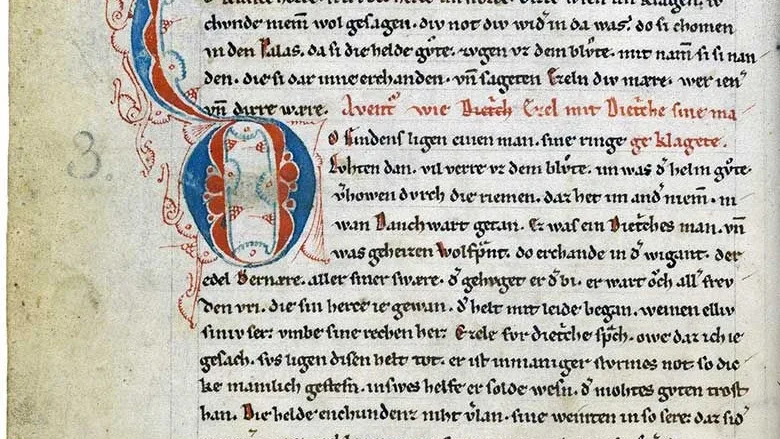 chvnde niem̄ wol gesagen. div not div wid͛ in da was. do si chomen
in den Palas. da si die helde gv̊te. zvgen vz dem blv̊te. mit nam̄ si si nan
den. die si dar inne erchanden. vn̄ sageten Ezeln div mære. wer ien͛
vn̄ dirre wære. Avent͛ wie Dietr͛ch Ezel mit Dietr͛che sine ma
o Findens ligen einen man. sine ringe ge klagete.
Lvhten dan. vil verre vz dem blv̊te. im was d͛ helm gv̊te.
v͛howen dvrch die riemen. daz het im and͛ niem̄. ni
wan Danchwart getan. Ez was ein Dietr͛ches man. vn̄
was geheizen Wolfp͛nt. do erchande in d͛ wigant. der
edel Bernære. aller siner swære. d͛ gehvget er d͛ bi. er wart ǒch all͛ frev
den vri. die sin herce ie gewan. d͛ helt mit leide began. weinen elliv
siniv ser. vmbe sine rechen her. Ezele for Dietr͛che sp͛ch. owe daz ich ie
gesach. svs ligen disen helt tot. er ist in maniger stvrmes not so die
ke manlich gestẽn. in swes helfe er solde wesñ. d͛ mohtes gv̊ten trost
han. Die helde enchundenz niht v͛lan. sine weinten in so sere. daz sid͛